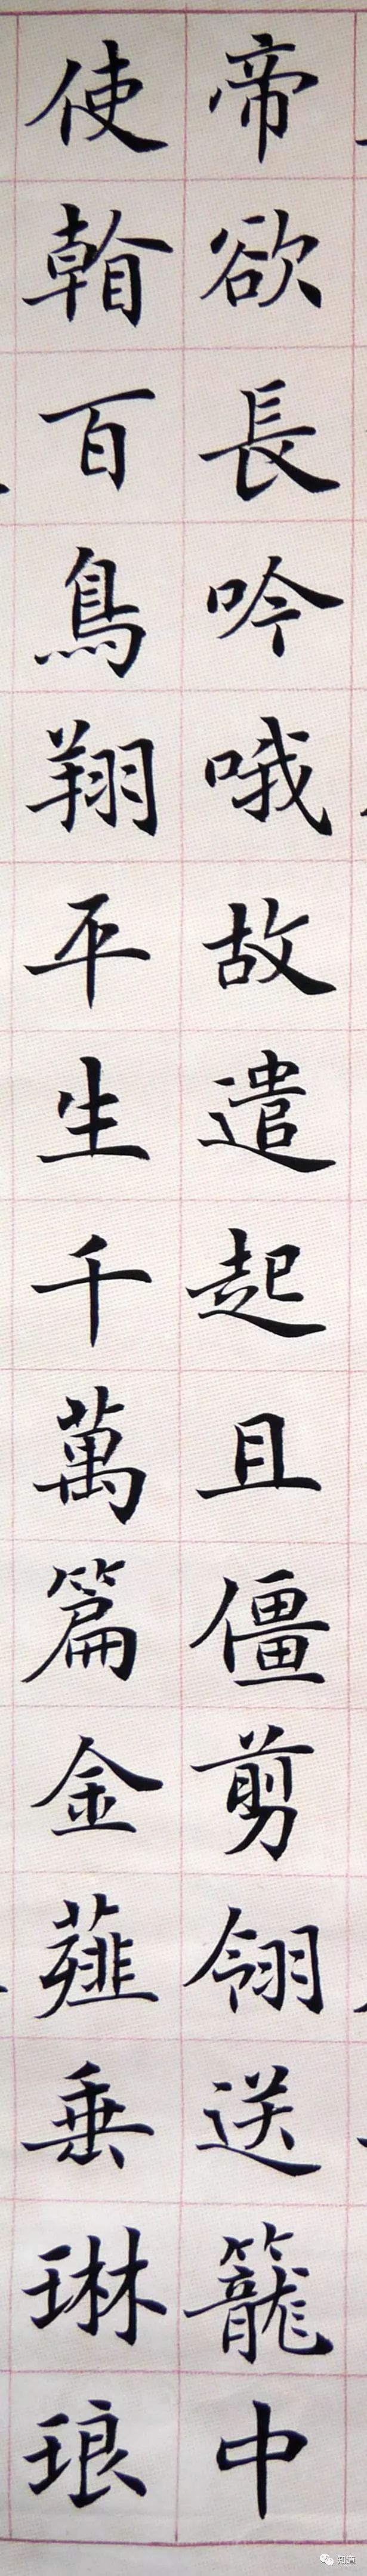 帝欲長吟哦故遣起且僵剪翎送籠中
使百鳥翔平生千萬篇金薤垂琳琅
知道